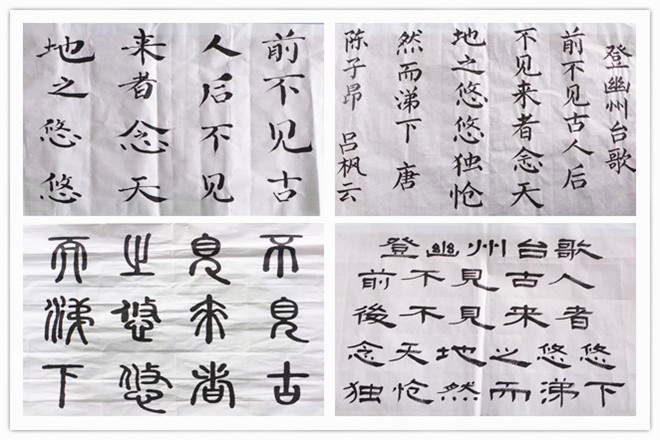 前不见古
人后不见
来者念天
地之悠悠
登幽州台歌
前不见古人后
不见来者念天
地之悠悠独怆
然而涕下 唐
陈子昂 吕枫云
不見古
見來者
之悠悠
而涕下
登幽州台歌
前不見古人
後不見来者
念天地之悠悠
独怆然而涕下